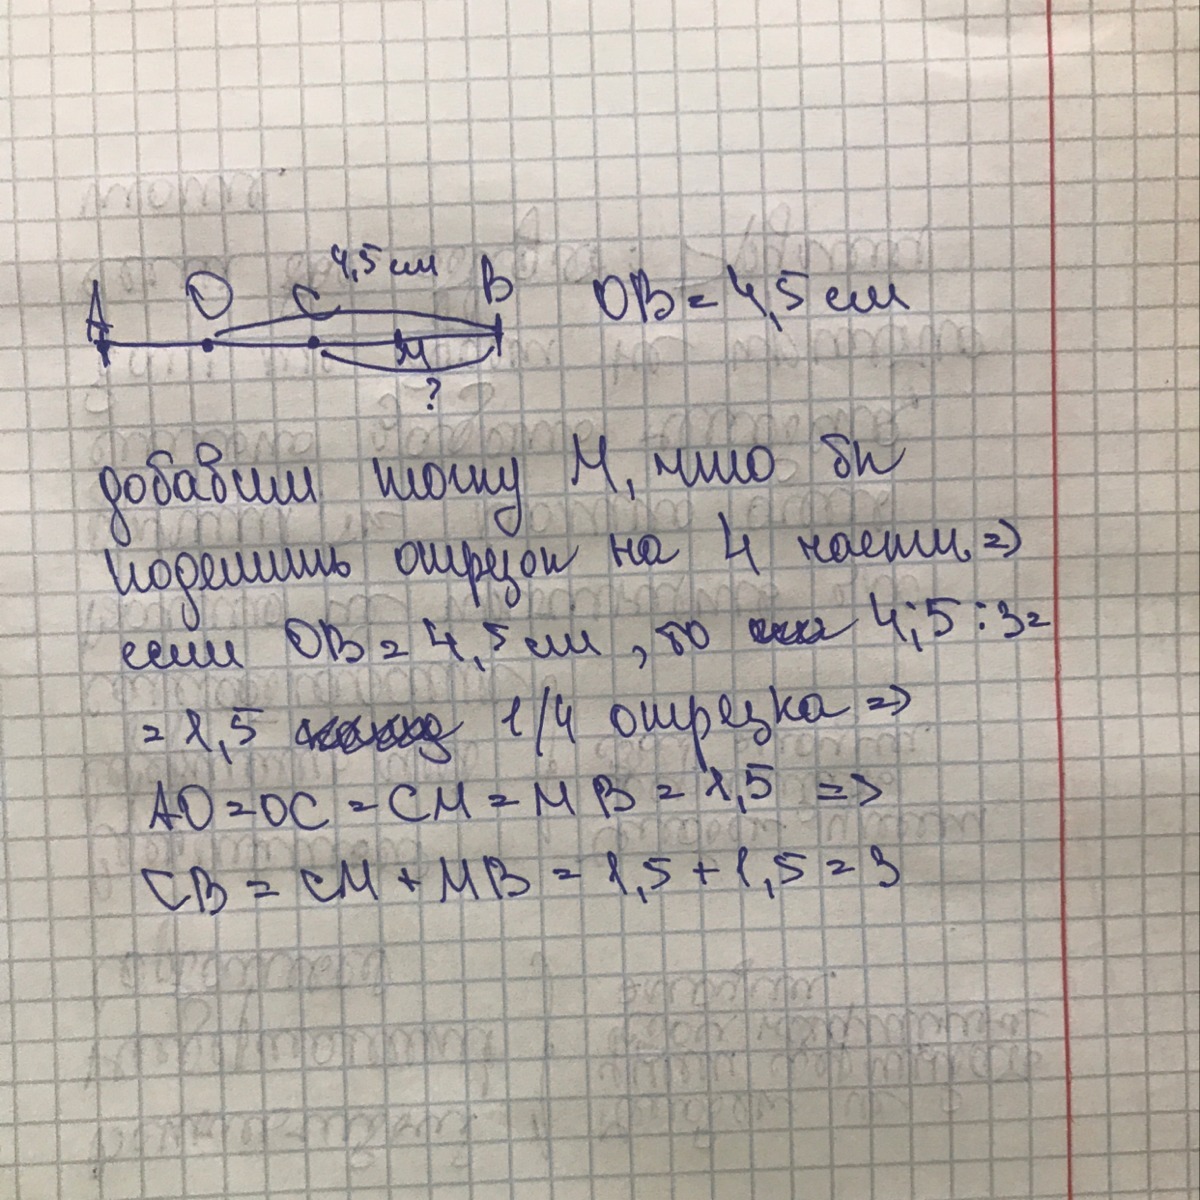 4,5 см
A O C B OB = 4,5 см
M
?
добавим точку М, что бы
поделить отрезок на 4 части =>
если OB = 4,5 см, то 4,5 : 3 =
= 1,5 1/4 отрезка =>
AO = OC = CM = MB = 1,5 =>
CB = CM + MB = 1,5 + 1,5 = 3